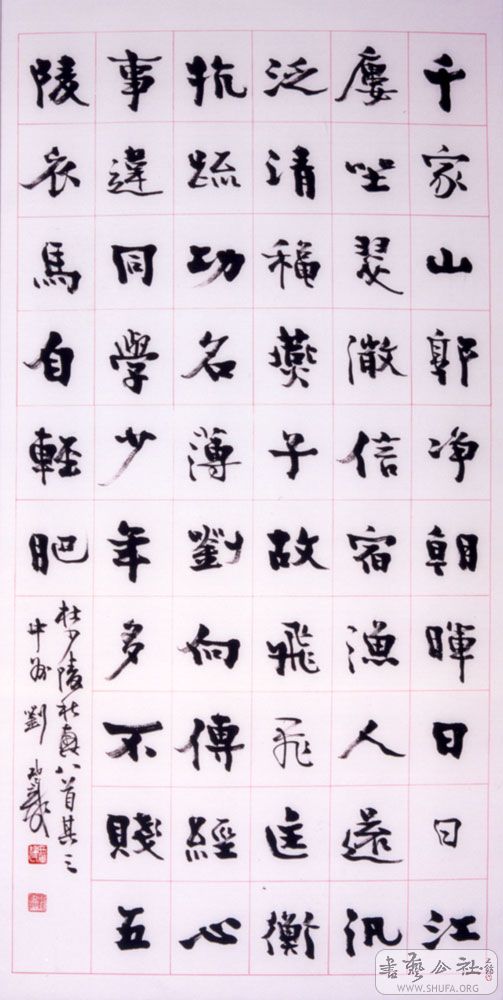 千家山郭净朝暉日日江
廔坐翠溦信宿漁人還汎
泛清穐燕子故飛飛匡衡
抗疏功名薄劉向傳經心
事違同學少年多不賤五
陵衣馬自輕肥
杜少陵秋興八首其三
劉
書藝公社
WWW.SHUFA.ORG